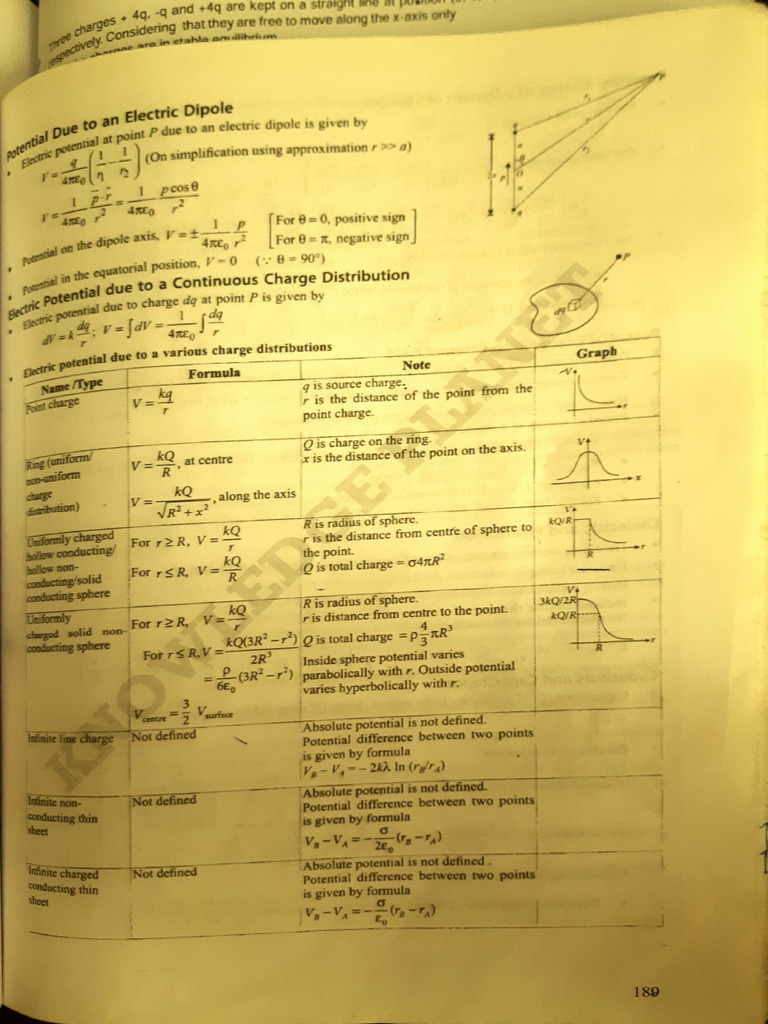 Three charges + 4q, -q and +4q are kept on a straight line at position
respectively. Considering that they are free to move along the x-axis only
charges are in stable equilibrium
Potential Due to an Electric Dipole
• Electric potential at point P due to an electric dipole is given by
V = q/4πε₀ (1/r₁ − 1/r₂) (On simplification using approximation r >> a)
V = 1/4πε₀ p⃗·r̂/r² = 1/4πε₀ p cos θ/r²
• Potential on the dipole axis, V = ± 1/4πε₀ p/r² [For θ = 0, positive sign
For θ = π, negative sign]
• Potential in the equatorial position, V = 0 (∵ θ = 90°)
Electric Potential due to a Continuous Charge Distribution
• Electric potential due to charge dq at point P is given by
dV = k dq/r ; V = ∫dV = 1/4πε₀ ∫ dq/r
P
r
dq
• Electric potential due to a various charge distributions
Name /Type Formula Note Graph
Point charge
V = kq/r
q is source charge.
r is the distance of the point from the
point charge.
V
r
Ring (uniform/
non-uniform
charge
distribution)
V = kQ/R, at centre
V = kQ/√R² + x², along the axis
Q is charge on the ring.
x is the distance of the point on the axis.
V
x
Uniformly charged
hollow conducting/
hollow non-
conducting/solid
conducting sphere
For r ≥ R, V = kQ/r
For r ≤ R, V = kQ/R
R is radius of sphere.
r is the distance from centre of sphere to
the point.
Q is total charge = σ4πR²
V
kQ/R
R
r
Uniformly
charged solid non-
conducting sphere
For r ≥ R, V = kQ/r
For r ≤ R, V = kQ(3R² − r²)/2R³
= ρ/6ε₀ (3R² − r²)
V centre = 3/2 V surface
R is radius of sphere.
r is distance from centre to the point.
Q is total charge = ρ 4/3 πR³
Inside sphere potential varies
parabolically with r. Outside potential
varies hyperbolically with r.
V
3kQ/2R
kQ/R
R
r
Infinite line charge
Not defined
Absolute potential is not defined.
Potential difference between two points
is given by formula
V_B − V_A = − 2kλ ln (r_B/r_A)
Infinite non-
conducting thin
sheet
Not defined
Absolute potential is not defined.
Potential difference between two points
is given by formula
V_B − V_A = − σ/2ε₀ (r_B − r_A)
Infinite charged
conducting thin
sheet
Not defined
Absolute potential is not defined .
Potential difference between two points
is given by formula
V_B − V_A = − σ/ε₀ (r_B − r_A)
KNOWLEDGE PLANET
189